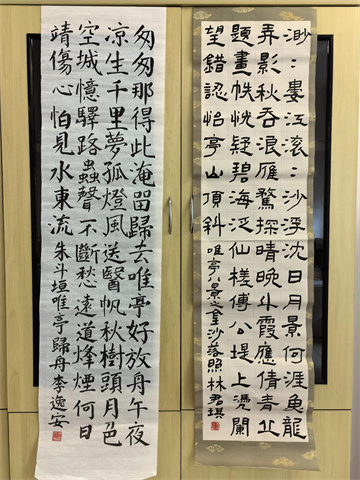 渺〻婁江滾〻沙浮沈日月景何涯魚龍
弄影秋吞浪雁鶩探晴晚斗霞應倩青丘
題畫帙恍疑碧海泛仙槎傅公堤上凭闌
望錯認怡亭山頂斜 唯亭八景之金沙落照 林君琪
匆匆那得此淹留歸去唯亭好放舟午夜
涼生千里夢孤燈風送醫帆秋樹頭月色
空城憶驛路蟲聲不斷愁遠道烽煙何日
靖傷心怕見水東流 朱斗垣唯亭歸舟 李逸安